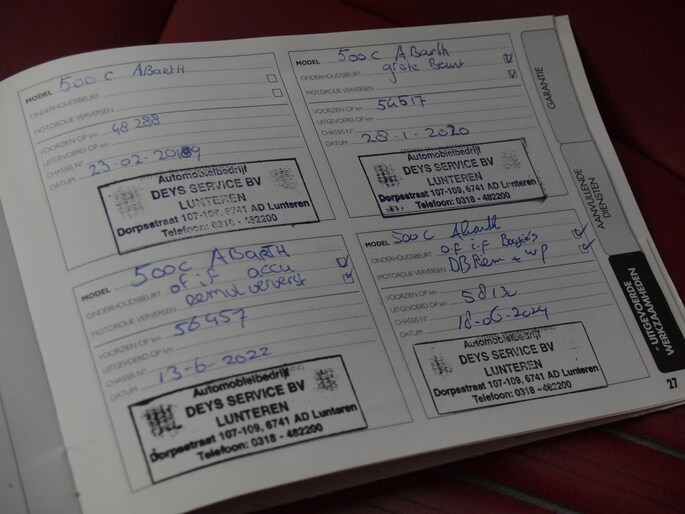 MODEL 500C ABARTH
ONDERHOUDSBEURT
MOTOROLIE VERVERSEN
VOORZIEN OP km 48288
UITGEVOERD OP km
CHASSIS N°
DATUM 23-02-2019
Automobielbedrijf
DEYS SERVICE BV
LUNTEREN
Dorpsstraat 107-109, 6741 AD Lunteren
Telefoon: 0318 - 482200
MODEL 500C ABarth
grote Beurt
ONDERHOUDSBEURT
MOTOROLIE VERVERSEN
VOORZIEN OP km 54517
UITGEVOERD OP km
CHASSIS N°
DATUM 28-1-2020
Automobielbedrijf
DEYS SERVICE BV
LUNTEREN
Dorpsstraat 107-109, 6741 AD Lunteren
Telefoon: 0318 - 482200
MODEL 500C ABARTH
of if accu
ONDERHOUDSBEURT remvl ververst
MOTOROLIE VERVERSEN
VOORZIEN OP km 56457
UITGEVOERD OP km
CHASSIS N°
DATUM 13-6-2022
Automobielbedrijf
DEYS SERVICE BV
LUNTEREN
Dorpsstraat 107-109, 6741 AD Lunteren
Telefoon: 0318 - 482200
MODEL 500C Abarth
o.f i.f Bougie's
ONDERHOUDSBEURT
MOTOROLIE VERVERSEN DB Riem + wp
VOORZIEN OP km
UITGEVOERD OP km
CHASSIS N°
DATUM 18-06-2024
Automobielbedrijf
DEYS SERVICE BV
LUNTEREN
Dorpsstraat 107-109, 6741 AD Lunteren
Telefoon: 0318 - 482200
GARANTIE
AANVULLENDE
DIENSTEN
UITGEVOERDE
WERKZAAMHEDEN
27